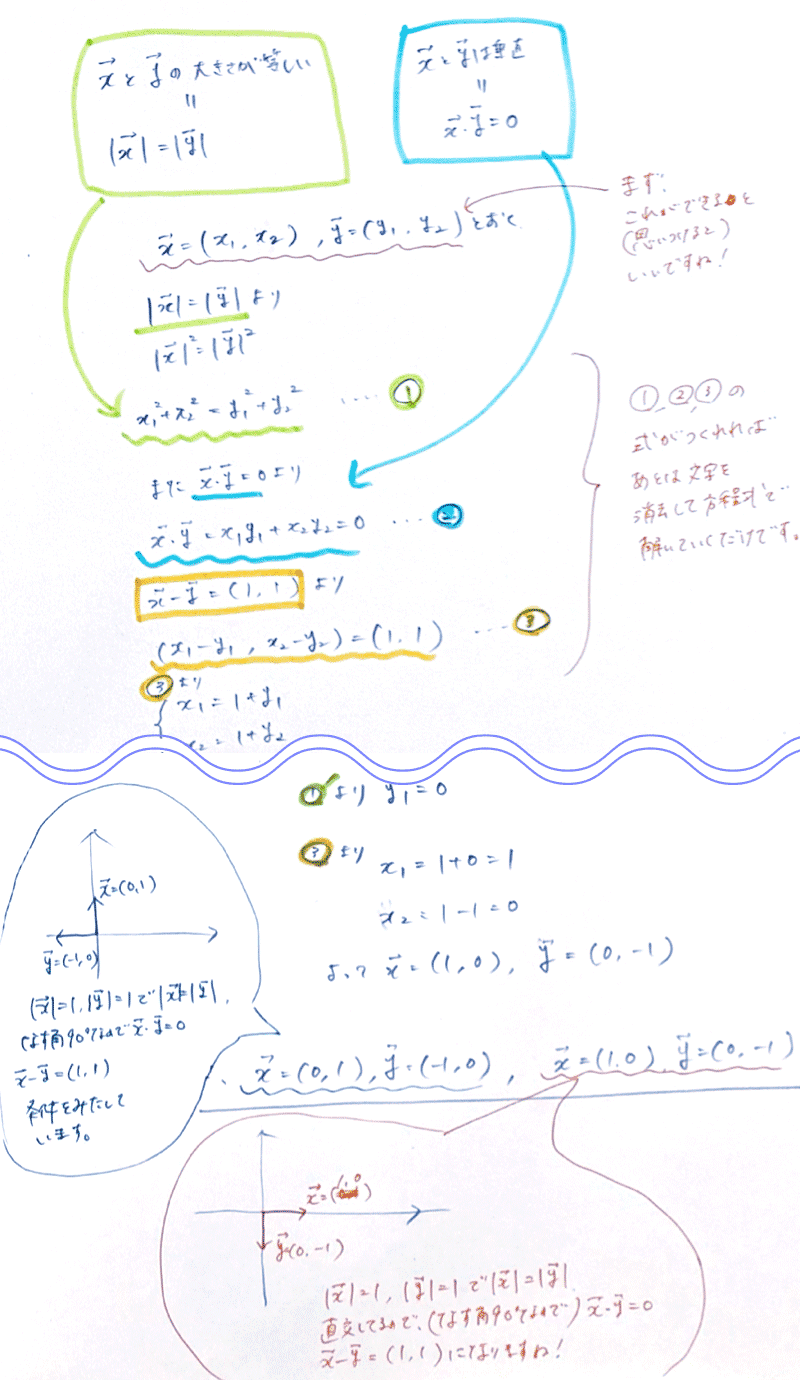 x⃗とy⃗の大きさが等しい
=
|x⃗|=|y⃗|
x⃗とy⃗は垂直
=
x⃗・y⃗=0
x⃗=(x₁,x₂),y⃗=(y₁,y₂)とおく
まず、
これができると
(思いつけると)
いいですね!
|x⃗|=|y⃗|より
|x⃗|²=|y⃗|²
x₁²+x₂²=y₁²+y₂² ....①
またx⃗・y⃗=0より
x⃗・y⃗=x₁y₁+x₂y₂=0 ...②
x⃗-y⃗=(1,1)より
(x₁-y₁,x₂-y₂)=(1,1) ...③
①,②,③の
式がつくれれば
あとは文字を
消去して方程式を
解いていくだけです。
③より
x₁=1+y₁
x₂=1+y₂
①'より y₁=0
③より x₁=1+0=1
x₂=1-1=0
よって x⃗=(1,0), y⃗=(0,-1)
x⃗=(0,1)
y⃗=(-1,0)
|x⃗|=1,|y⃗|=1で|x⃗|=|y⃗|,
なす角90°なのでx⃗・y⃗=0
x⃗-y⃗=(1,1)
条件をみたして
います。
x⃗=(0,1),y⃗=(-1,0), x⃗=(1,0) y⃗=(0,-1)
x⃗=(1,0)
y⃗(0,-1)
|x⃗|=1,|y⃗|=1で|x⃗|=|y⃗|
直交してるので、(なす角90°なので)x⃗・y⃗=0
x⃗-y⃗=(1,1)になりますね!